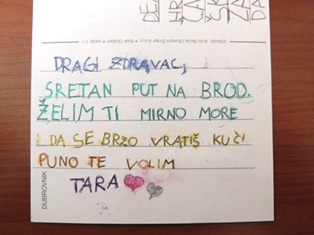 DRAGI ZDRAVAC,
SRETAN PUT NA BROD.
ŽELIM TI MIRNO MORE
I DA SE BRZO VRATIŠ KUĆI
PUNO TE VOLIM
TARA
DUBROVNIK